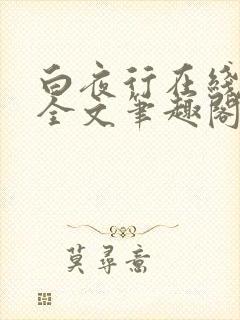 白夜行在线
全文笔趣阁
莫寻斋